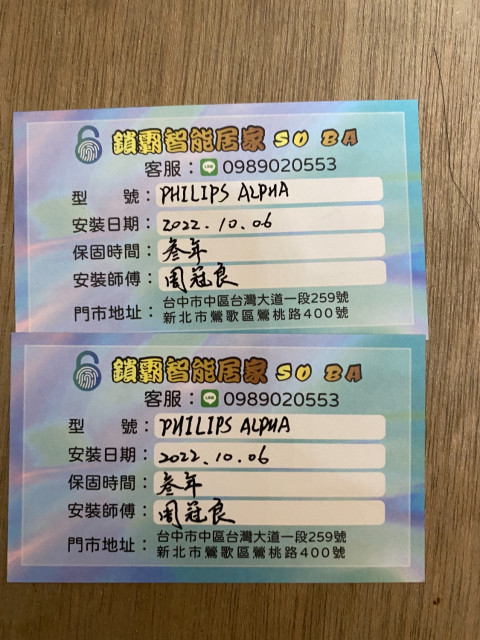 鎖霸智能居家 SO BA
客服：LINE 0989020553
型 號：PHILIPS ALPHA
安裝日期：2022.10.06
保固時間：叁年
安裝師傅：周冠良
門市地址：台中市中區台灣大道一段259號
新北市鶯歌區鶯桃路400號
鎖霸智能居家 SO BA
客服：LINE 0989020553
型 號：PHILIPS ALPHA
安裝日期：2022.10.06
保固時間：叁年
安裝師傅：周冠良
門市地址：台中市中區台灣大道一段259號
新北市鶯歌區鶯桃路400號